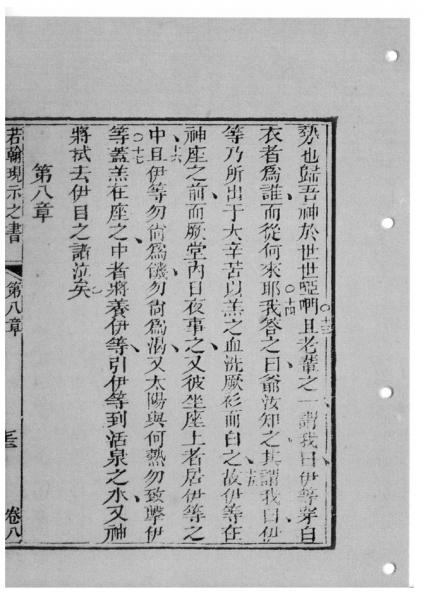 勢也歸吾神於世世啞𠸄○十三且老輩之一謂我曰伊等穿白
衣者為誰而從何來耶○十四我答之曰爺汝知之其謂我曰伊
等乃所出于大辛苦以羔之血洗厥衫而白之十五故伊等在
神座之前而厥堂內日夜事之又彼坐座上者居伊等之
中十六且伊等勿尙為饑勿尙為渴又太陽與何熱勿致擊伊
等○十七蓋羔在座之中者將養伊等引伊等到活泉之水又神
將拭去伊目之諸泣矣
第八章
若翰現示之書 第八章 卷八